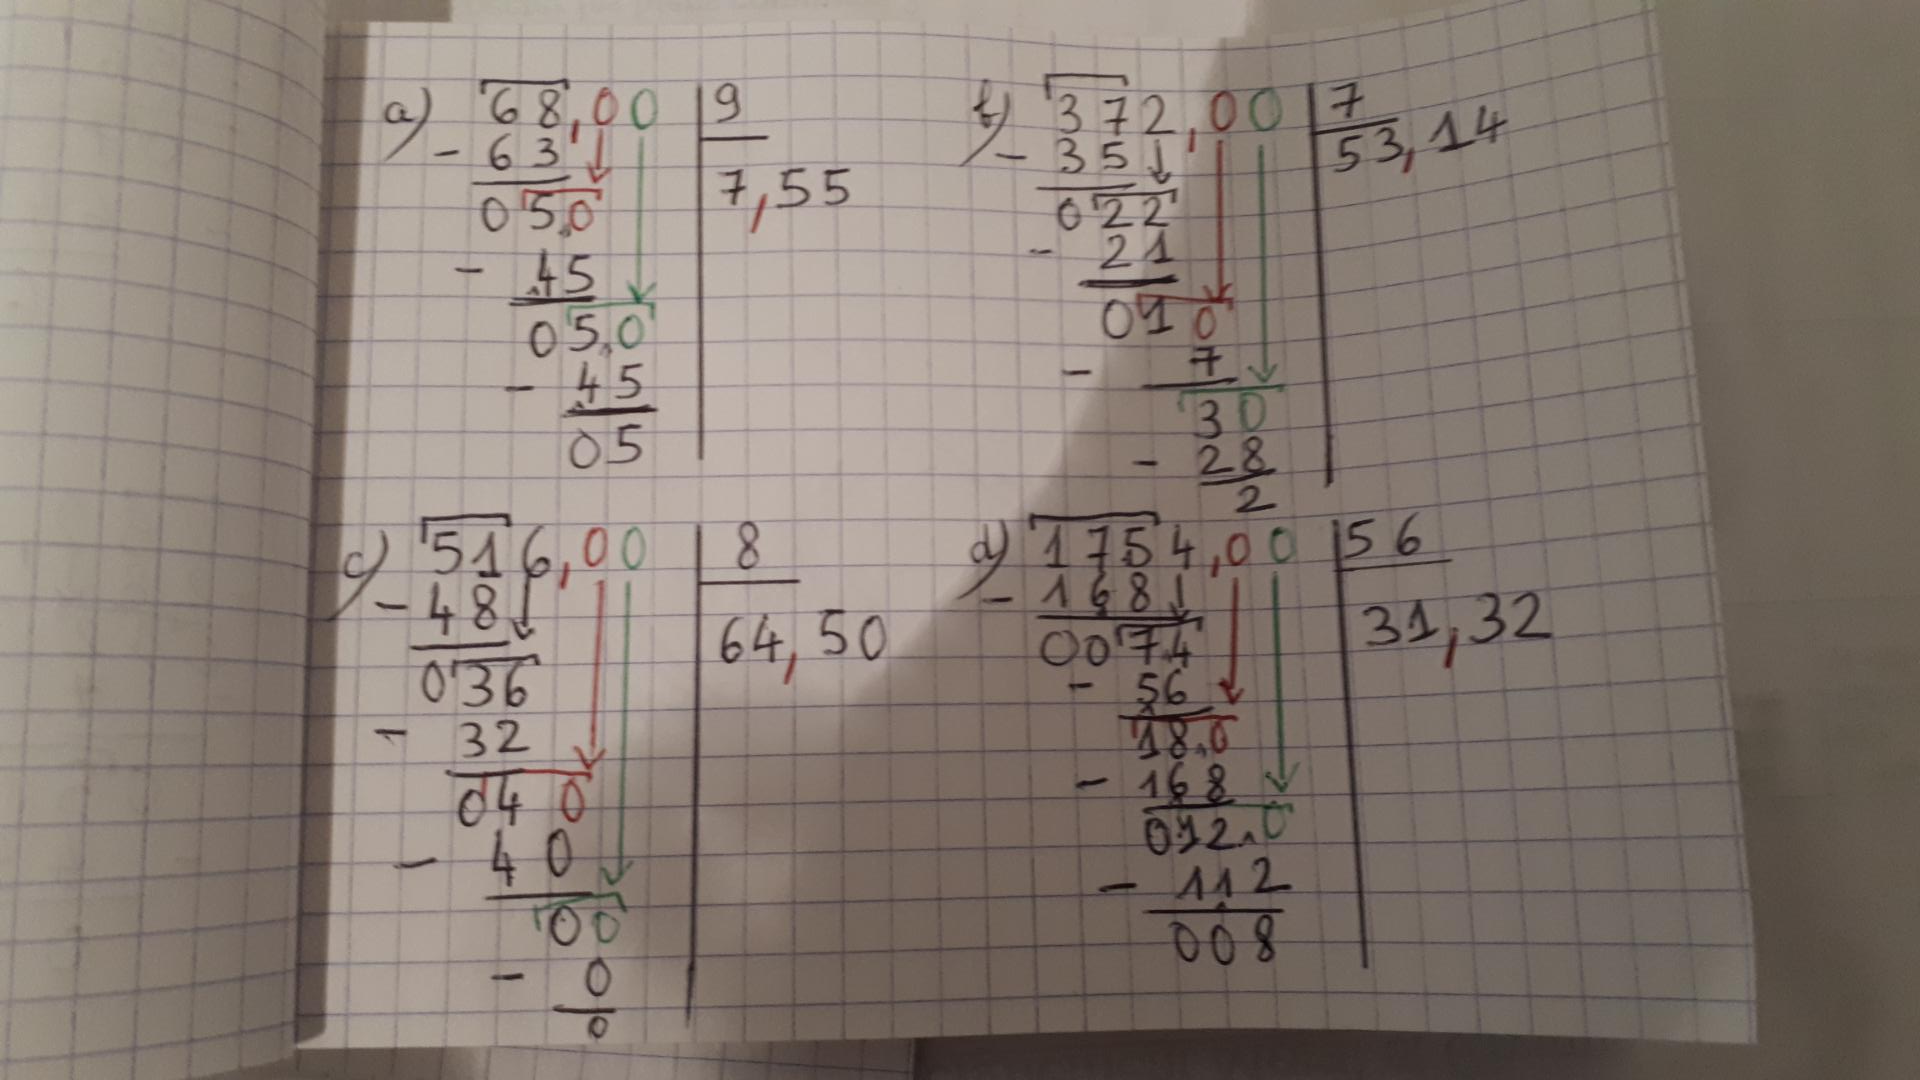 a) 68,00 | 9
- 63
7,55
050
- 45
050
- 45
05
b) 372,00 | 7
- 35
53,14
022
- 21
010
- 7
30
- 28
2
c) 516,00 | 8
- 48
64,50
036
- 32
040
- 40
00
- 0
0
d) 1754,00 | 56
- 168
31,32
0074
- 56
180
- 168
0120
- 112
008